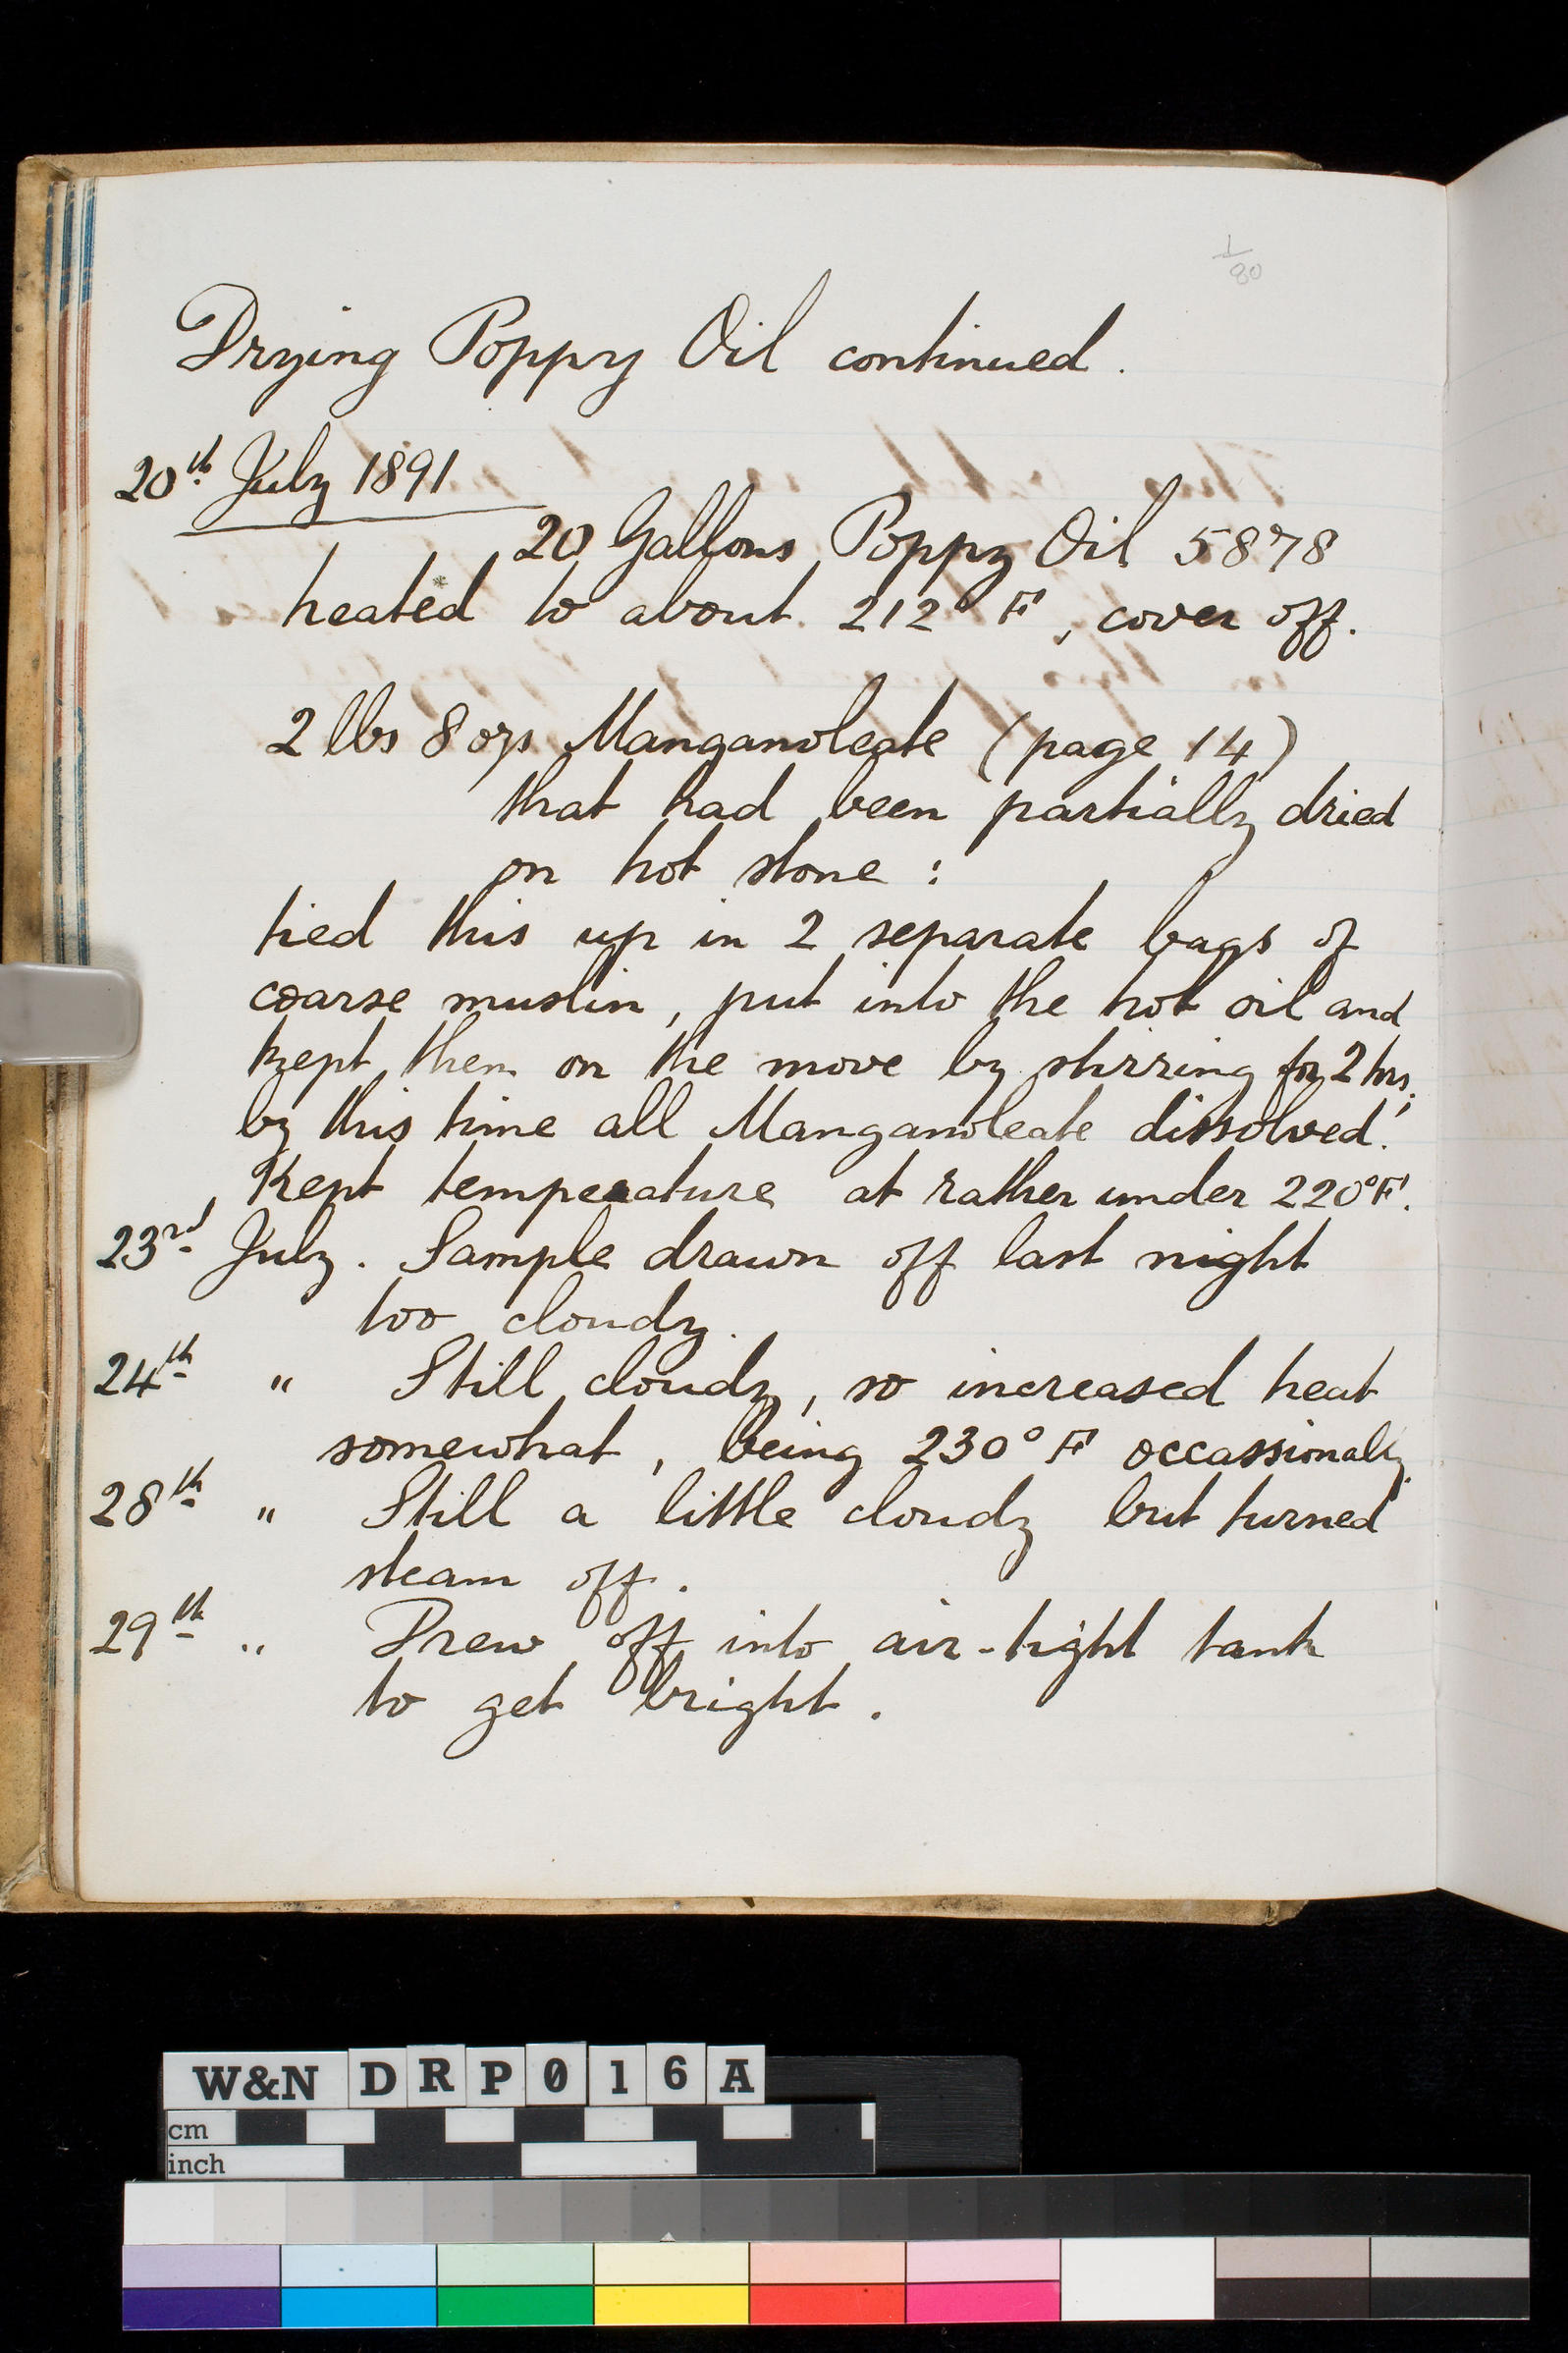 1/80
Drying Poppy Oil continued.
20th July 1891
20 Gallons Poppy Oil 5878
heated to about 212° F, cover off.
2 lbs 8 ozs Manganoleate (page 14)
that had been partially dried
on hot stone :
tied this up in 2 separate bags of
coarse muslin, put into the hot oil and
kept them on the move by stirring for 2 hrs;
by this time all Manganoleate dissolved.
Kept temperature at rather under 220°F.
23rd July. Sample drawn off last night
too cloudy.
24th " Still cloudy, so increased heat
somewhat, being 230° F occassionally.
28th " Still a little cloudy but turned
steam off.
29th " Drew off into air-tight tank
to get bright.
W&N DRP016A
cm
inch